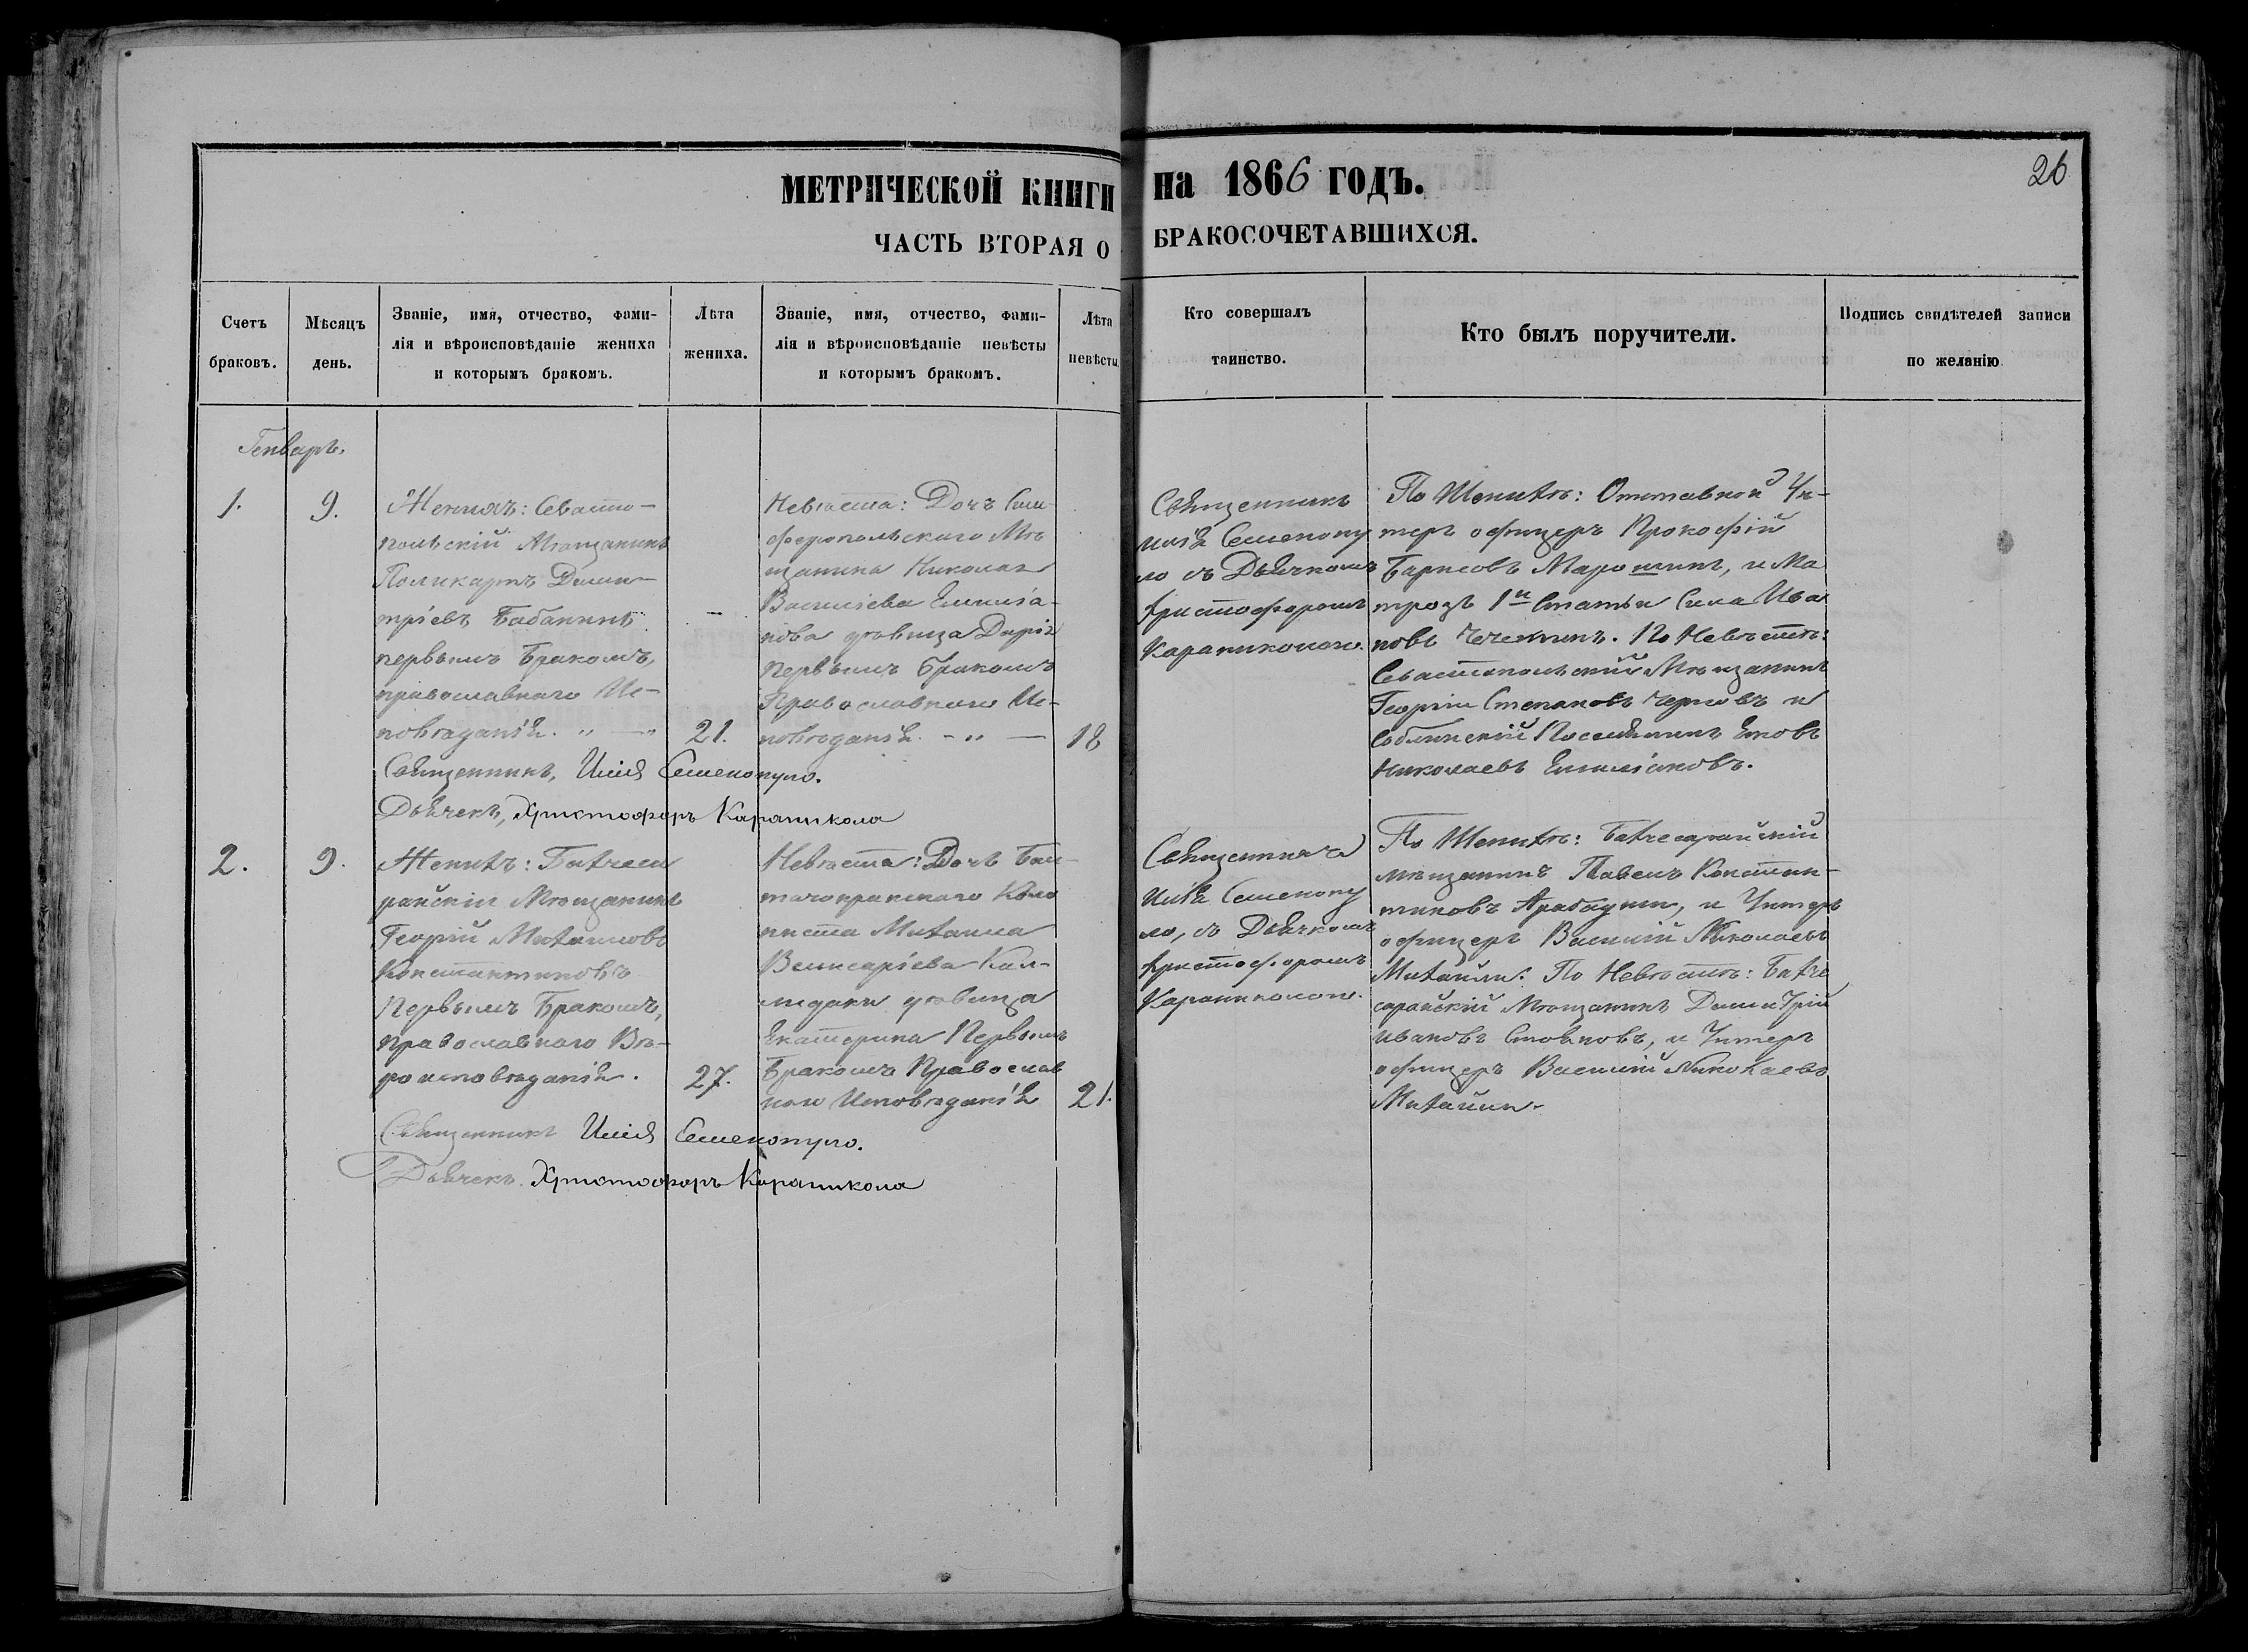 МЕТРИЧЕСКОЙ КНИГИ на 1866 ГОДЪ.
26
ЧАСТЬ ВТОРАЯ О БРАКОСОЧЕТАВШИХСЯ.
Счетъ
браковъ.
Мѣсяцъ
день.
Званіе, имя, отчество, фами-
лія и вѣроисповѣданіе жениха
и которымъ бракомъ.
Лѣта
жениха.
Званіе, имя, отчество, фами-
лія и вѣроисповѣданіе невѣсты
и которымъ бракомъ.
Лѣта
невѣсты.
Кто совершалъ
таинство.
Кто былъ поручители.
Подпись свидѣтелей записи
по желанію
Генварь.
1.
9.
Женихъ: Севасто-
польскій Мѣщанинъ
Поликарпъ Дими-
тріевъ Бабанинъ
первымъ Бракомъ,
православнаго Ис-
повѣданія.
21.
Невѣста: Дочь Сим
феропольскаго Мѣ
щанина Николая
Василіева Емилiа-
нова дѣвица Дарія
Первымъ Бракомъ
Православнаго Ис-
повѣданія
18
Священникъ
Илія Семенопу
ло съ Дьячкомъ
Христофоромъ
Караниколою.
По Женихѣ: Отставной Ун-
теръ офицеръ Прокофій
Барисовъ, и Ма
трозъ 1й Статьи Сила Ива
новъ. По Невѣстѣ:
Севастопольскій Мѣщанинъ
Георгій Степановъ Черновъ и
Поселянинъ
Николаевъ Емилiановъ.
Священникъ, Илія Семенопуло.
Дьячекъ, Христофоръ Караникола
2.
9.
Женихъ: Бахчеса
райскій Мѣщанинъ
Георгій Михаиловъ
Константиновъ
Первымъ Бракомъ,
православнаго Вѣ-
роисповѣданія.
27.
Невѣста: Дочь
Коло
ниста Михаила
Велисаріева Кал-
дѣвица
Екатерина Первымъ
Бракомъ Православ
наго Исповѣданія
21.
Священникъ
Илія Семенопу
ло, съ Дьячкомъ
Христофоромъ
Караниколою.
По Женихѣ: Бахчесарайскій
мѣщанинъ Павелъ Констан-
тиновъ, и Унтеръ
офицеръ Василій Николаевъ
Михайли. По Невѣстѣ: Бахче
сарайскій Мѣщанинъ Димитрій
Ивановъ, и Унтеръ
офицеръ Василій Николаевъ
Михайли.
Священникъ Илія Семенопуло.
Дьячекъ. Христофоръ Караникола